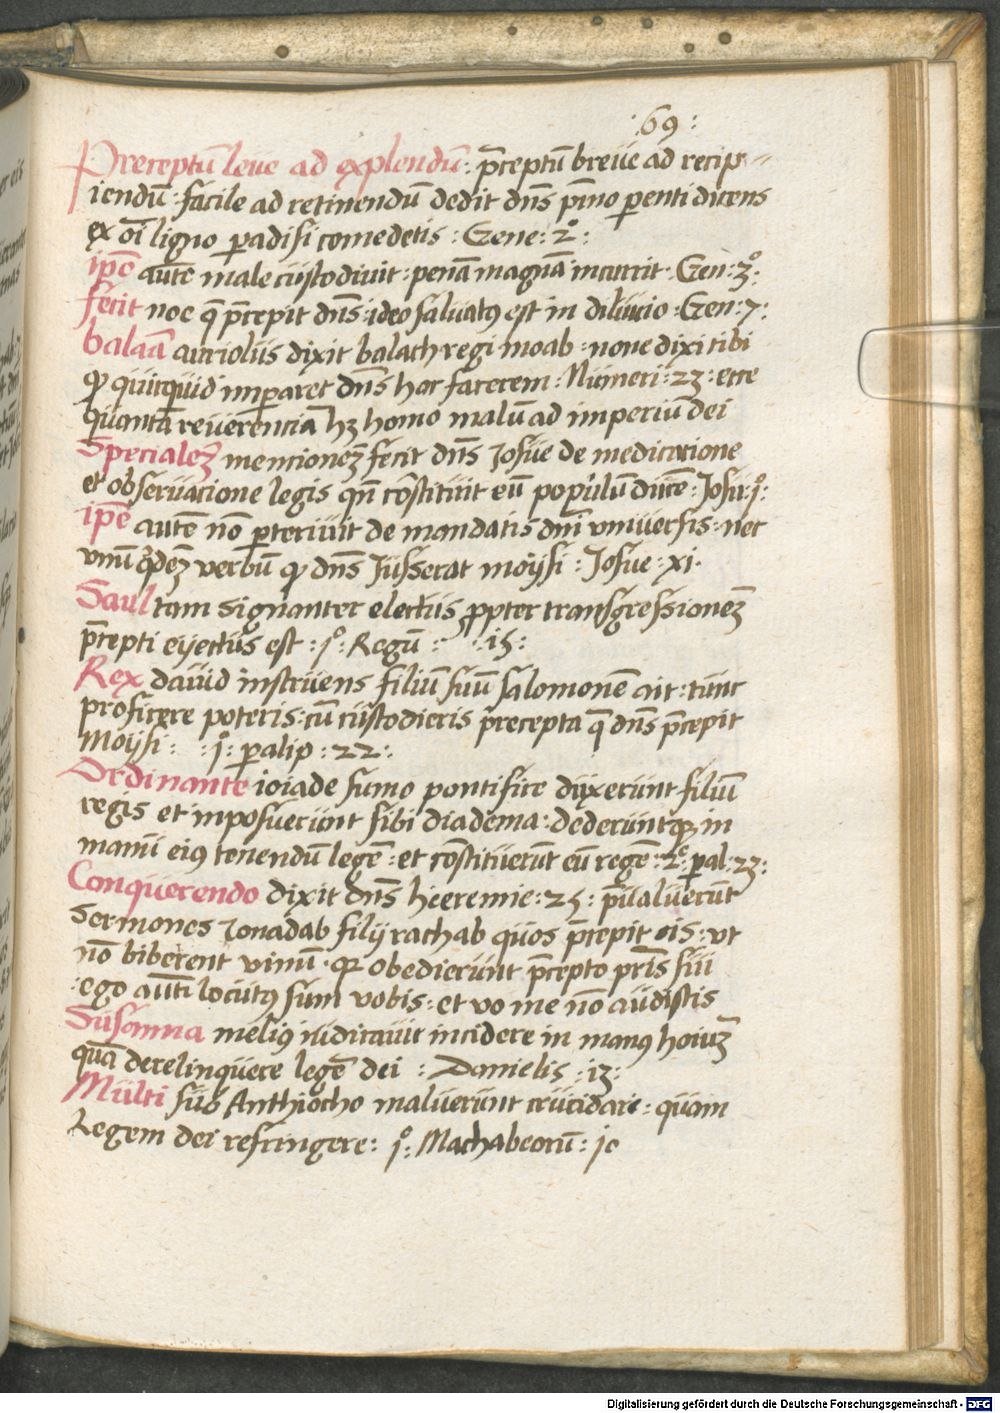 :69:
Preceptū leue ad explendū: p̄ceptū breue ad recip-
iendū: facile ad retinendū dedit dn̄s p̄mo ꝑenti dicens
ex oī ligno ꝑadisi comedetis: Gene: 2°:
ipē autē male custodiuit: penā magnā incurrit. Gen: 3°:
fecit noe q̄ p̄cepit dn̄s: ideo saluatꝰ est in diluuio. Gen: 7:
balaā auriolus dixit balach regi moab: none dixi tibi
ꝙ quitquid imꝑaret dn̄s hoc facerem: Numeri: 23: ecce
quanta reuerencia hꝫ homo malū ad imperiū dei
Specialeꝫ mencioneꝫ fecit dn̄s Josue de medicatione
et obseruacione legis qn̄ cōstituit eū populū ducē: Josu: j°:
ipē autē nō p̄teriuit de mandatis dn̄i vniuersis: nec
vnū q̇deꝫ verbū ꝙ dn̄s Jusserat moijsi: Josue: xi.
Saul tam signanter electus ꝓpter transgressioneꝫ
p̄cepti eijectus est: j°: Regū: :15:
Rex dauid instruens filiū suū salomonē ait: tunc
proficere poteris: cū custodieris precepta q̄ dn̄s p̄cepit
Moijsi: :j°: ꝑalip: 22:
Ordinante ioiade sumo pontifice dixerunt filiū
regis et imposuerunt sibi diadema: dederuntqꝫ in
manū eiꝰ tenendū legē: et cōstituerūt eū regē: 2°: ꝑal: 23:
Conquerendo dixit dn̄s hieremie: 25: p̄ualuerūt
Sermones Jonadab filij rachab quos p̄cepit eis: vt
nō biberent vinū. qꝫ obedierunt p̄cepto pr̄is sui
:ego autē locutꝰ sum vobis: et vo me nō audistis
Susanna meliꝰ iudicauit incidere in manꝰ hoīuꝫ
quā derelinquere legē dei: Danielis: 13:
Multi sub Anthiocho maluerunt trucidari: quam
Legem dei refringere: j°: Machabeorū: jc
Digitalisierung gefördert durch die Deutsche Forschungsgemeinschaft - DFG